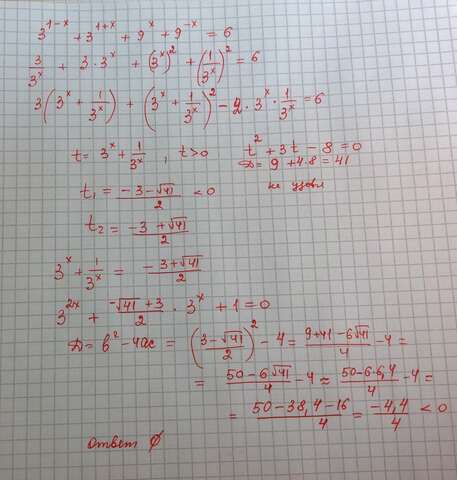 3^{1-x} + 3^{1+x} + 9^x + 9^{-x} = 6
3/3^x + 3 · 3^x + (3^x)^2 + (1/3^x)^2 = 6
3(3^x + 1/3^x) + (3^x + 1/3^x)^2 - 2 · 3^x · 1/3^x = 6
t = 3^x + 1/3^x , t > 0
t^2 + 3t - 8 = 0
D = 9 + 4·8 = 41
t_1 = (-3 - √41)/2 < 0 не удовл
t_2 = (-3 + √41)/2
3^x + 1/3^x = (-3 + √41)/2
3^{2x} + (-√41 + 3)/2 · 3^x + 1 = 0
D = b^2 - 4ac = ((3 - √41)/2)^2 - 4 = (9 + 41 - 6√41)/4 - 4 =
= (50 - 6√41)/4 - 4 ≈ (50 - 6·6,4)/4 - 4 =
= (50 - 38,4 - 16)/4 = (-4,4)/4 < 0
ответ ∅